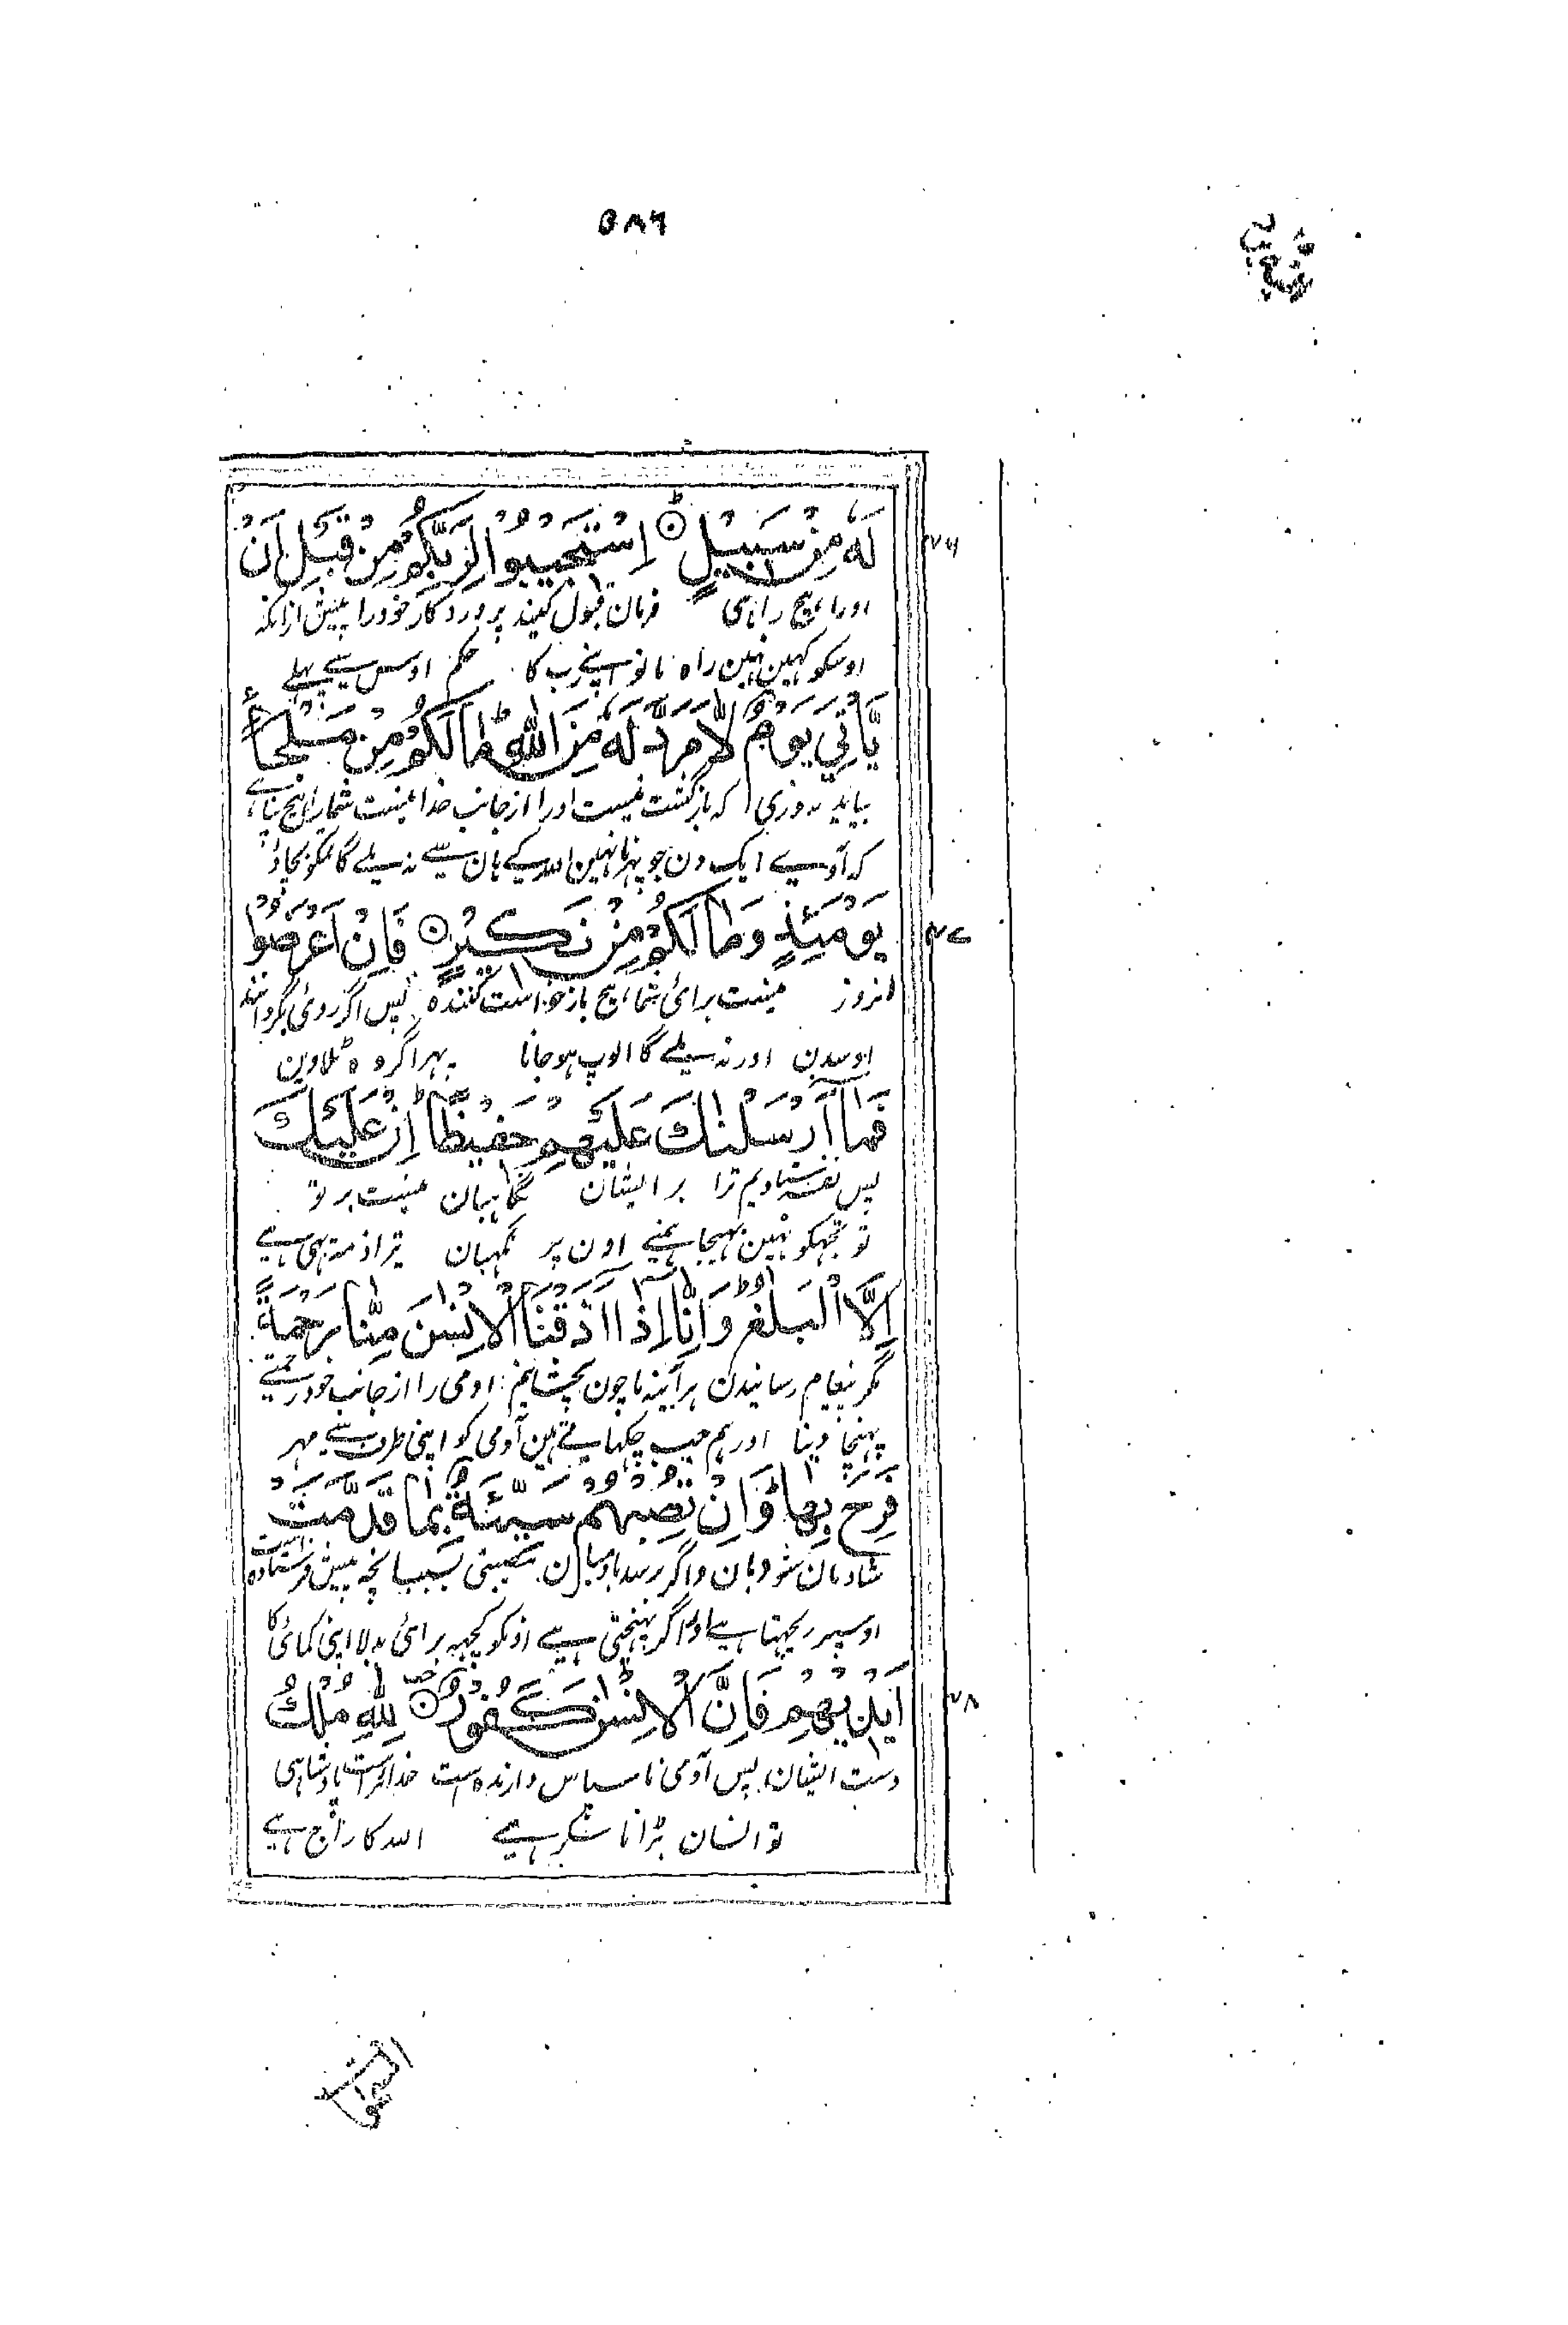 ۵۸۶
لَهٗ مِنْ سَبِيْلٍ ۞ اِسْتَجِيْبُوْا لِرَبِّكُمْ مِنْ قَبْلِ اَنْ
۴۶
اورا ہیچ راہی فرمان قبول کنید پروردگار خود را پیش ازانکہ
اوسکو کہین نہین راہ مانو اپنے رب کا حکم اوس سے پہلے
يَّاْتِيَ يَوْمٌ لَّا مَرَدَّ لَهٗ مِنَ اللهِ ؕ مَا لَكُمْ مِنْ مَّلْجَاٍ
بیاید روزی کہ بازگشت نیست اورا از جانب خدا نیست شمارا ہیچ پناہے
کہ آوے ایک دن جو پہرنا نہین اللہ کے ہان سے نہ ملے گا تمکو بچاؤ
يَوْمَئِذٍ وَمَا لَكُمْ مِنْ نَكِيْرٍ ۞ فَاِنْ اَعْرَضُوْا
۴۷
انروز نیست برائ شما ہیچ بازخواست کنندہ پس اگر روئ بگردانند
اوسدن اور نہ ملے گا الوپ ہوجانا پہر اگر وہ ٹلاوین
فَمَاۤ اَرْسَلْنٰكَ عَلَيْهِمْ حَفِيْظًا ؕ اِنْ عَلَيْكَ
پس نفرستادیم ترا بر ایشان نگاہبان نیست بر تو
تو تجہکو نہین بہیجا ہمنے اون پر نگہبان تیرا ذمہ یہی ہے
اِلَّا الْبَلٰغُ ؕ وَاِنَّاۤ اِذَاۤ اَذَقْنَا الْاِنْسٰنَ مِنَّا رَحْمَةً
مگر پیغام رسانیدن ہرآئینہ ما چون بچشانیم ادمی را از جانب خود رحمتے
پہنچا دینا اور ہم جب چکہاتے ہین آدمی کو اپنی طرف سے مہر
فَرِحَ بِهَا ؕ وَاِنْ تُصِبْهُمْ سَيِّئَةٌۢ بِمَا قَدَّمَتْ
شادمان شود بان و اگر برسد بادمیان مصیبتی بسبب انچہ پیش فرستادہ است
اوسپر ریجہتا ہے اور اگر پہنچتی ہے اونکو کچہہ برائ بدلا اپنی کمائ کا
اَيْدِيْهِمْ فَاِنَّ الْاِنْسٰنَ كَفُوْرٌ ۞ لِلّٰهِ مُلْكُ
۴۸
دست ایشان پس آدمی ناسپاس دارندہ است خداراست پادشاہی
تو انسان بڑا ناشکر ہے اللہ کا راج ہے